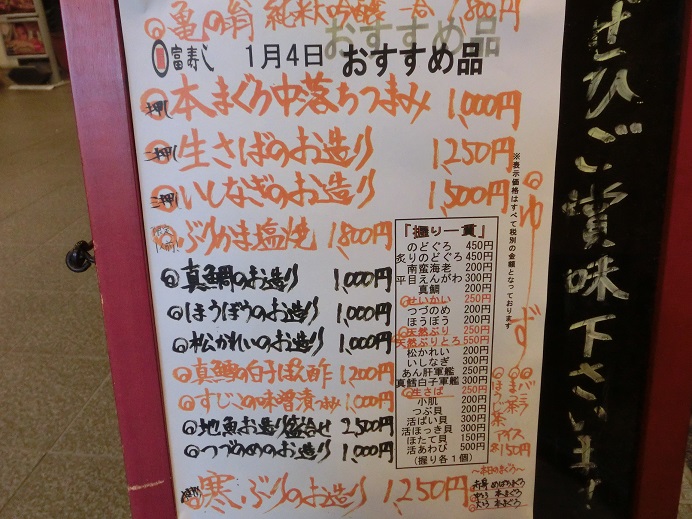 亀の翁 純米大吟醸 一合 1,800円
富寿し 1月4日 おすすめ品
おすすめ品
一押し 本まぐろ中落ちつまみ 1,000円
二押し 生さばのお造り 1,250円
三押し いしなぎのお造り 1,500円
ぶりかま塩焼 1,800円
真鯛のお造り 1,000円
ほうぼうのお造り 1,000円
松かれいのお造り 1,000円
真鱈の白子ぽん酢 1,200円
すじこの味噌漬つまみ 1,000円
地魚お造り盛合せ 2,500円
つづめのお造り 1,000円
寒ぶりのお造り 1,250円
「握り一貫」
のどぐろ 450円
炙りのどぐろ 450円
南蛮海老 200円
平目えんがわ 300円
真鯛 200円
せいかい 250円
つづのめ 200円
ほうぼう 200円
天然ぶり 250円
天然ぶりとろ 550円
松かれい 200円
いしなぎ 300円
あん肝軍艦 250円
真鱈白子軍艦 300円
生さば 250円
小肌 200円
つぶ貝 200円
活ばい貝 300円
活ほっき貝 300円
ほたて貝 150円
活あわび 500円
(握り各1個)
※表示価格はすべて税別の金額となっております
ゆず
バニラ
まっ茶
ほうじ茶
アイス
各150円
〜本日のまぐろ〜
赤身 めばちまぐろ
中とろ 本まぐろ
大とろ 本まぐろ
ぜひご賞味下さいます